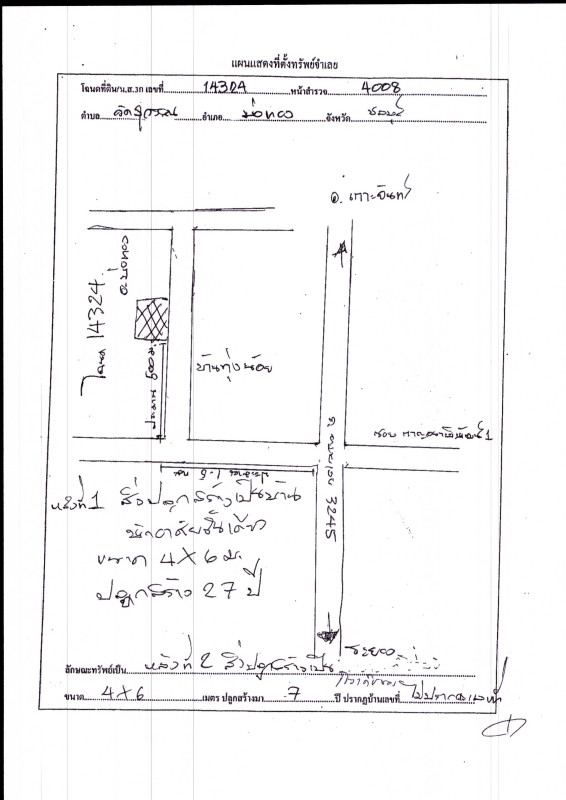 แผนแสดงที่ตั้งทรัพย์จำเลย
โฉนดที่ดิน/น.ส.3ก เลขที่ 14324 หน้าสำรวจ 4008
ตำบล วัดสุวรรณ อำเภอ บ่อทอง จังหวัด ชลบุรี
อ. เกาะจันทร์
โฉนด 14324
อ.บ่อทอง
ประมาณ 500 ม.
บ้านทุ่งน้อย
ซอย 1
ประมาณ 1.5 กม.
ถ. 3245
หลังที่ 1 สิ่งปลูกสร้างเป็นบ้าน
พักอาศัยชั้นเดียว
ขนาด 4X6 ม.
ปลูกสร้าง 27 ปี
ระยอง
ลักษณะทรัพย์เป็น หลังที่ 2 สิ่งปลูกสร้างเป็น
ขนาด 4X6 เมตร ปลูกสร้างมา 7 ปี ปรากฏบ้านเลขที่ ไม่ปรากฏ